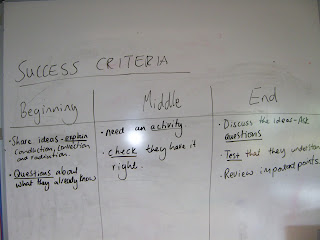 SUCCESS CRITERIA
Beginning
• Share ideas - explain
Conduction, Convection
and radiation.
• Questions about
what they already know
Middle
• need an activity
• check they have it
right.
End
• Discuss the ideas - Ask
questions
• Test that they understan
• Review important points.